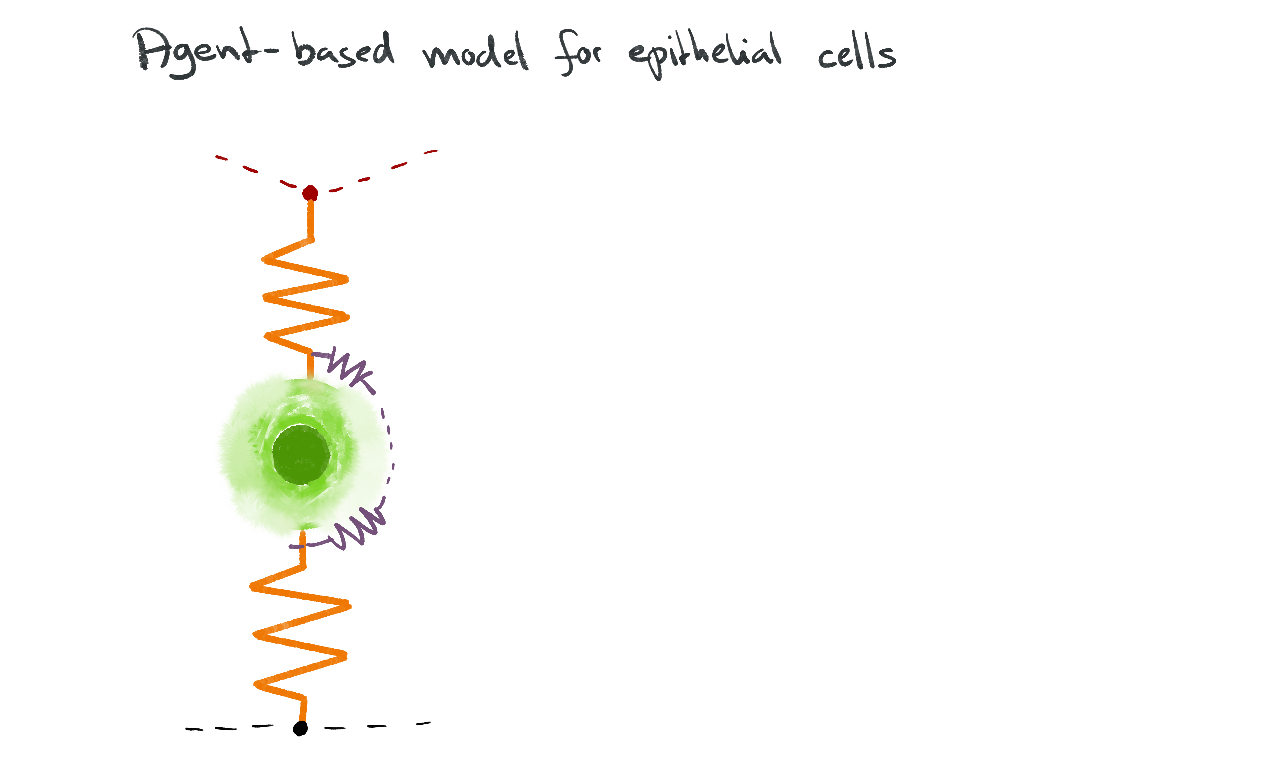 Agent-based model for epithelial cells